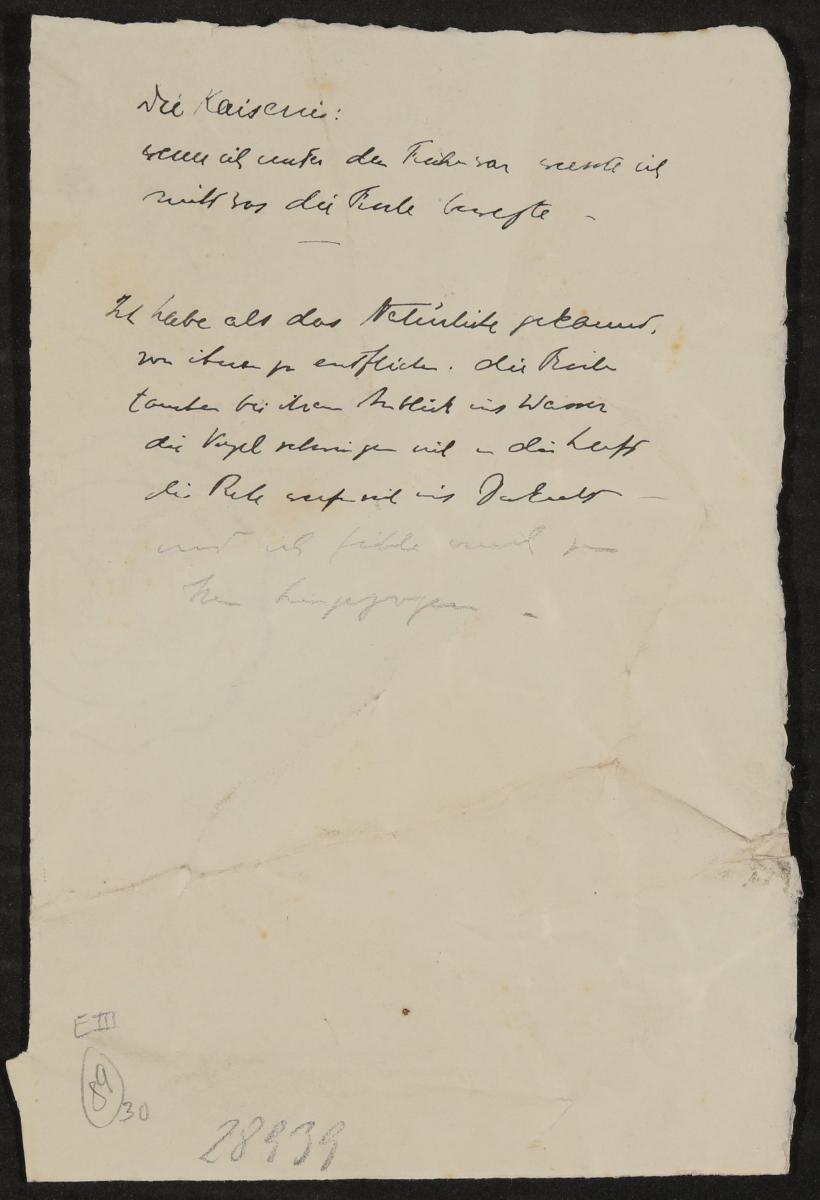 Die Kaiserin:
wenn ich unter den Tieren war wusste ich
nicht was die Tiere bewegte –
Ich habe als das Natürliche gekannt,
von ihnen zu entfliehen. die Fische
tauchen bei ihrem Anblick ins Wasser
die Vögel schwingen sich in die Luft
die Rehe werfen sich ins Dickicht –
und ich fühle mich zu
ihnen hingezogen –
E III
89
30
28939